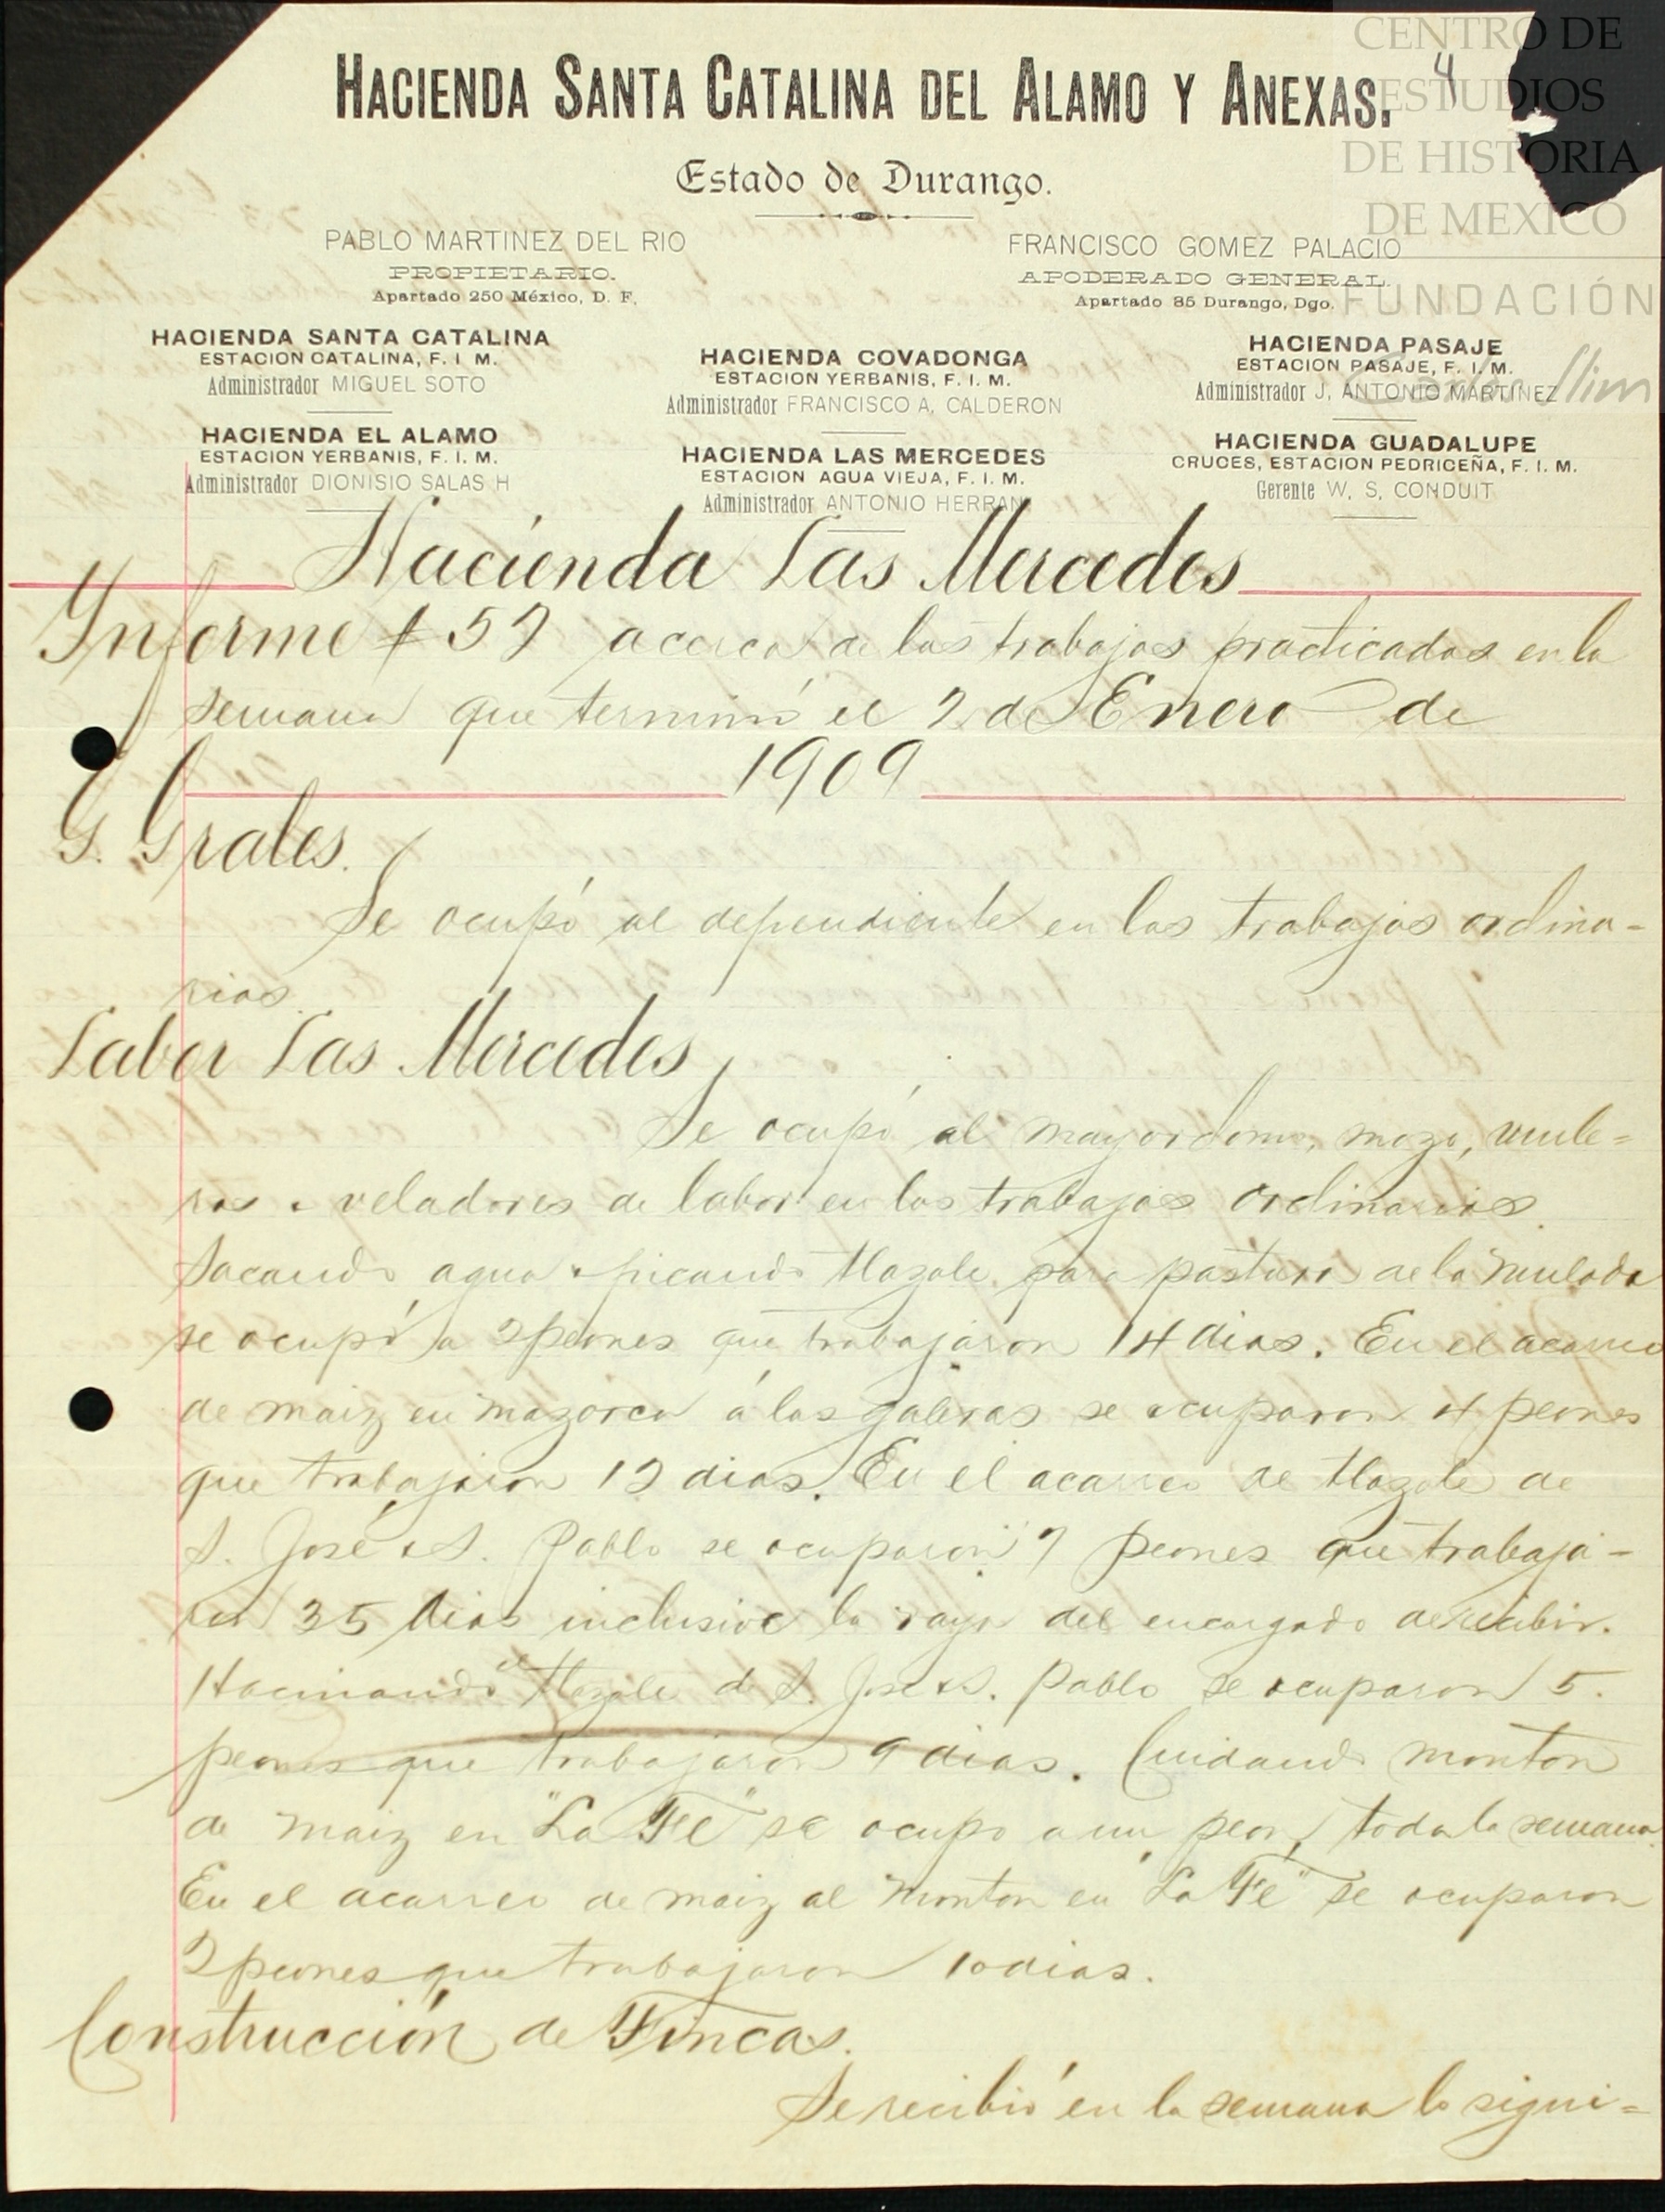 CENTRO DE
ESTUDIOS
DE HISTORIA
DE MEXICO
FUNDACIÓN
Carlos Slim
4
HACIENDA SANTA CATALINA DEL ALAMO Y ANEXAS.
Estado de Durango.
PABLO MARTINEZ DEL RIO
PROPIETARIO.
Apartado 250 México, D. F.
FRANCISCO GOMEZ PALACIO
APODERADO GENERAL.
Apartado 85 Durango, Dgo.
HACIENDA SANTA CATALINA
ESTACION CATALINA, F. I. M.
Administrador MIGUEL SOTO
HACIENDA EL ALAMO
ESTACION YERBANIS, F. I. M.
Administrador DIONISIO SALAS H
HACIENDA COVADONGA
ESTACION YERBANIS, F. I. M.
Administrador FRANCISCO A. CALDERON
HACIENDA LAS MERCEDES
ESTACION AGUA VIEJA, F. I. M.
Administrador ANTONIO HERRAN
HACIENDA PASAJE
ESTACION PASAJE, F. I. M.
Administrador J, ANTONIO MARTINEZ
HACIENDA GUADALUPE
CRUCES, ESTACION PEDRICEÑA, F. I. M.
Gerente W. S. CONDUIT
Hacienda Las Mercedes
Informe # 52 acerca de los trabajos practicados en la
semana que terminó el 2 de Enero de
1909
G. Grales.
Se ocupó al dependiente en los trabajos ordina-
rios.
Labor Las Mercedes
Se ocupó al mayordomo, mozo, mule=
ros & veladores de labor en los trabajos ordinarios.
Sacando agua & picando tlazole para pastura de la mulada
se ocupó a 2 peones que trabajaron 14 dias. En el acarreo
de maiz en mazorca á las galeras se ocuparon 4 peones
que trabajaron 12 dias. En el acarreo de tlazole de
S. José & S. Pablo se ocuparon 7 peones que trabaja-
ron 35 dias inclusive la raya del encargado de recibir.
Hacinando el tlazole de S. José & S. Pablo se ocuparon 5.
peones que trabajaron 9 dias. Cuidando monton
de maiz en "La Fé" se ocupo a un peon, toda la semana.
En el acarreo de maiz al monton en "La Fé" se ocuparon
2 peones que trabajaron 10 dias.
Construcción de Fincas.
Se recibió en la semana lo sigui=